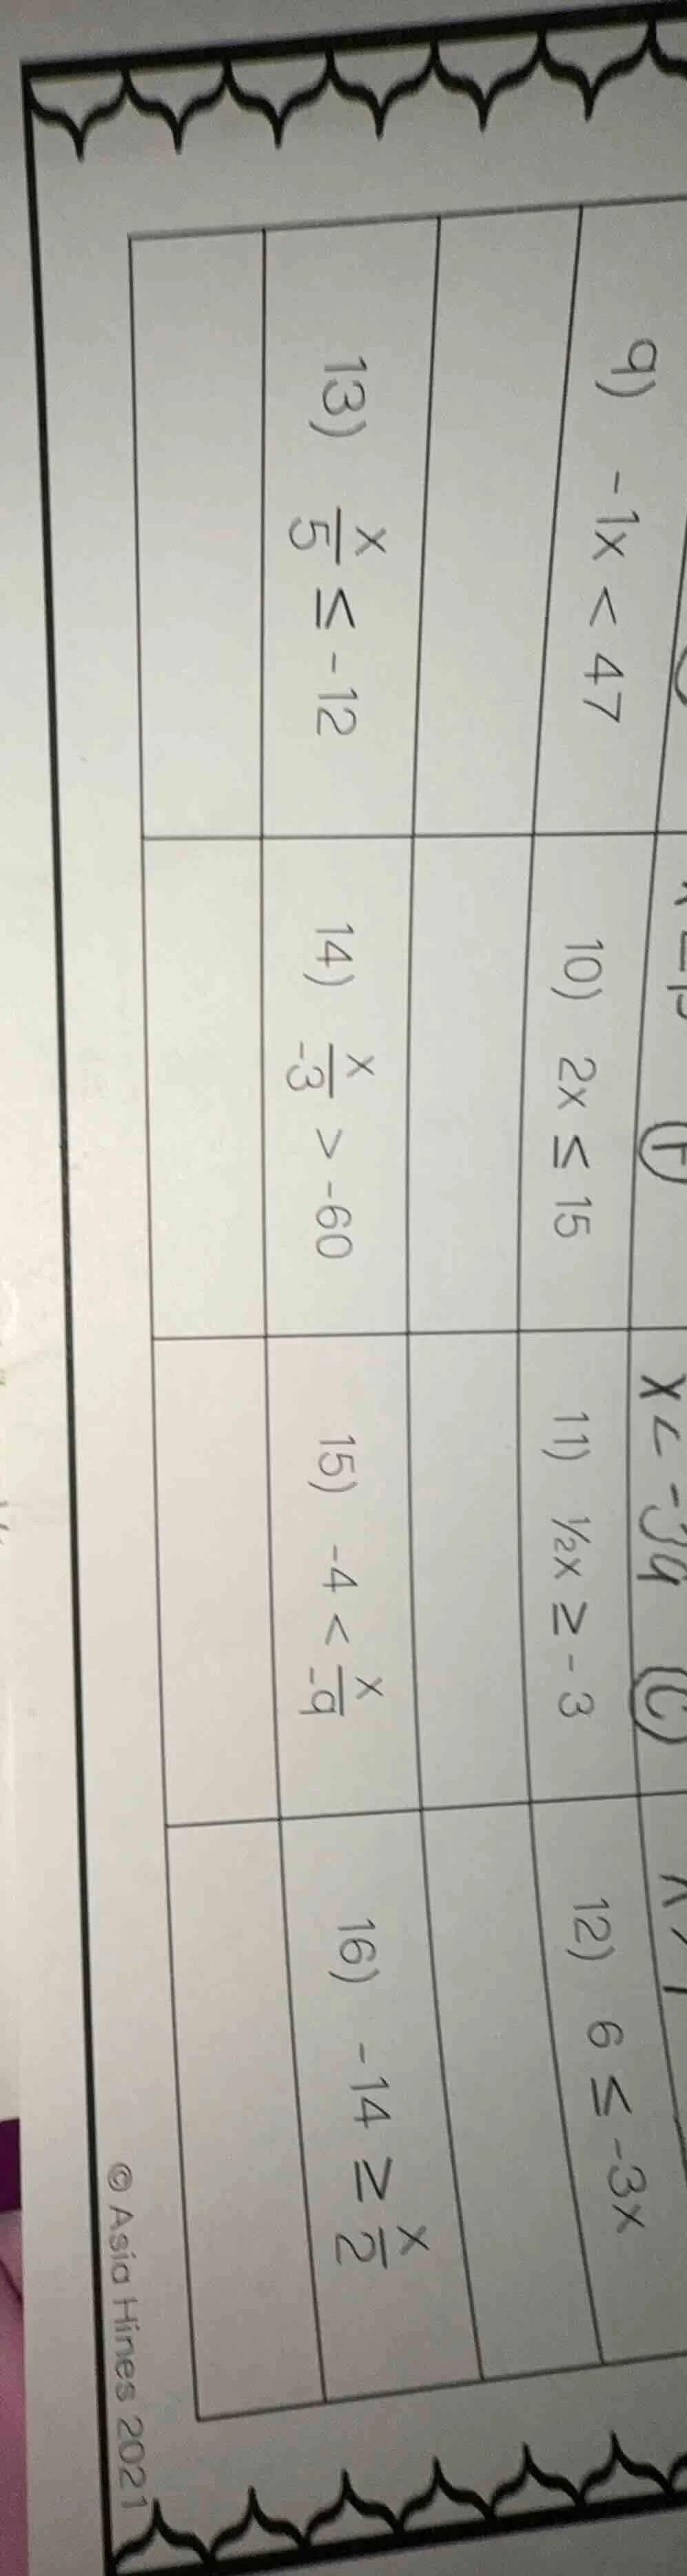 x < -34 C
9) -1x < 47
10) 2x ≤ 15
11) ½x ≥ -3
12) 6 ≤ -3x
13) x/5 ≤ -12
14) x/-3 > -60
15) -4 < x/-9
16) -14 ≥ x/2
© Asia Hines 2021